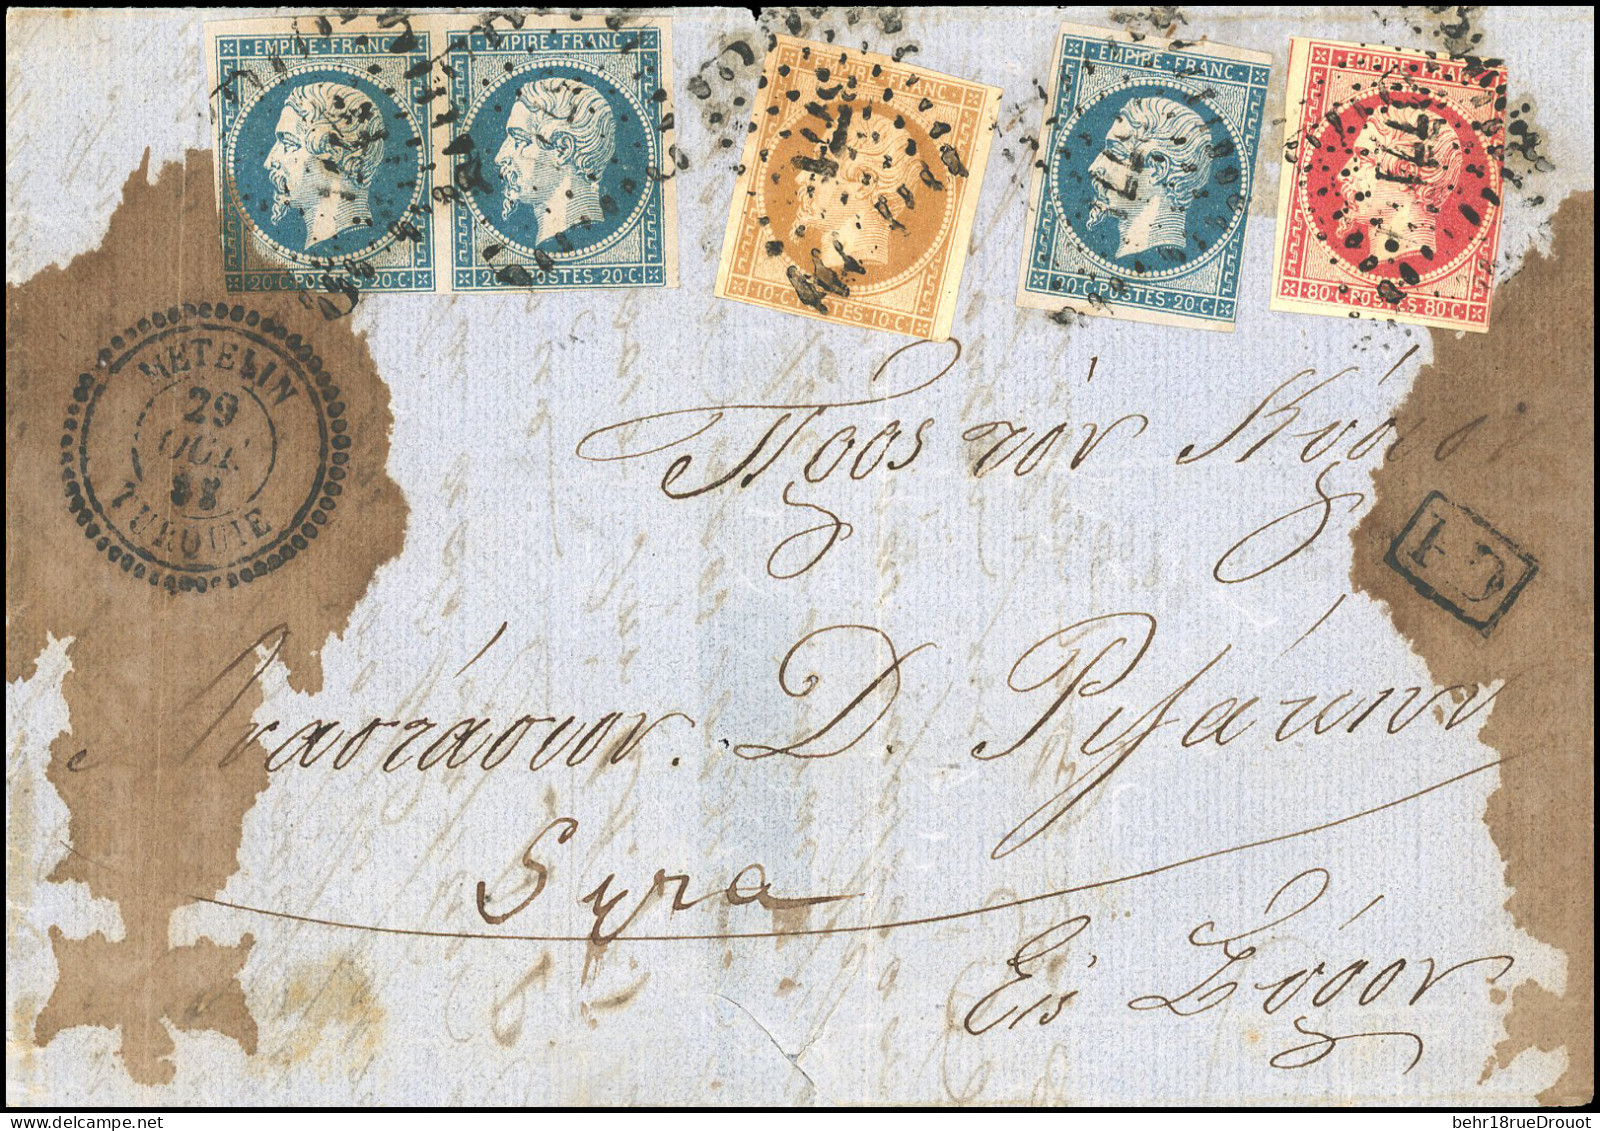 EMPIRE FRANC
20·C·POSTES·20·C·
EMPIRE FRANC
20·C·POSTES·20·C·
EMPIRE FRANC
10·C·POSTES·10·C·
EMPIRE FRANC
20·C·POSTES·20·C·
EMPIRE FRANC
80·C·POSTES·80·C·
METELIN
29
OCT.
58
TURQUIE
Πρὸς τὸν Κύριον
PD
Ἀναστάσιον. Δ. Ριζάκην
Syra
Εἰς Σύρον
behr18rueDrouot